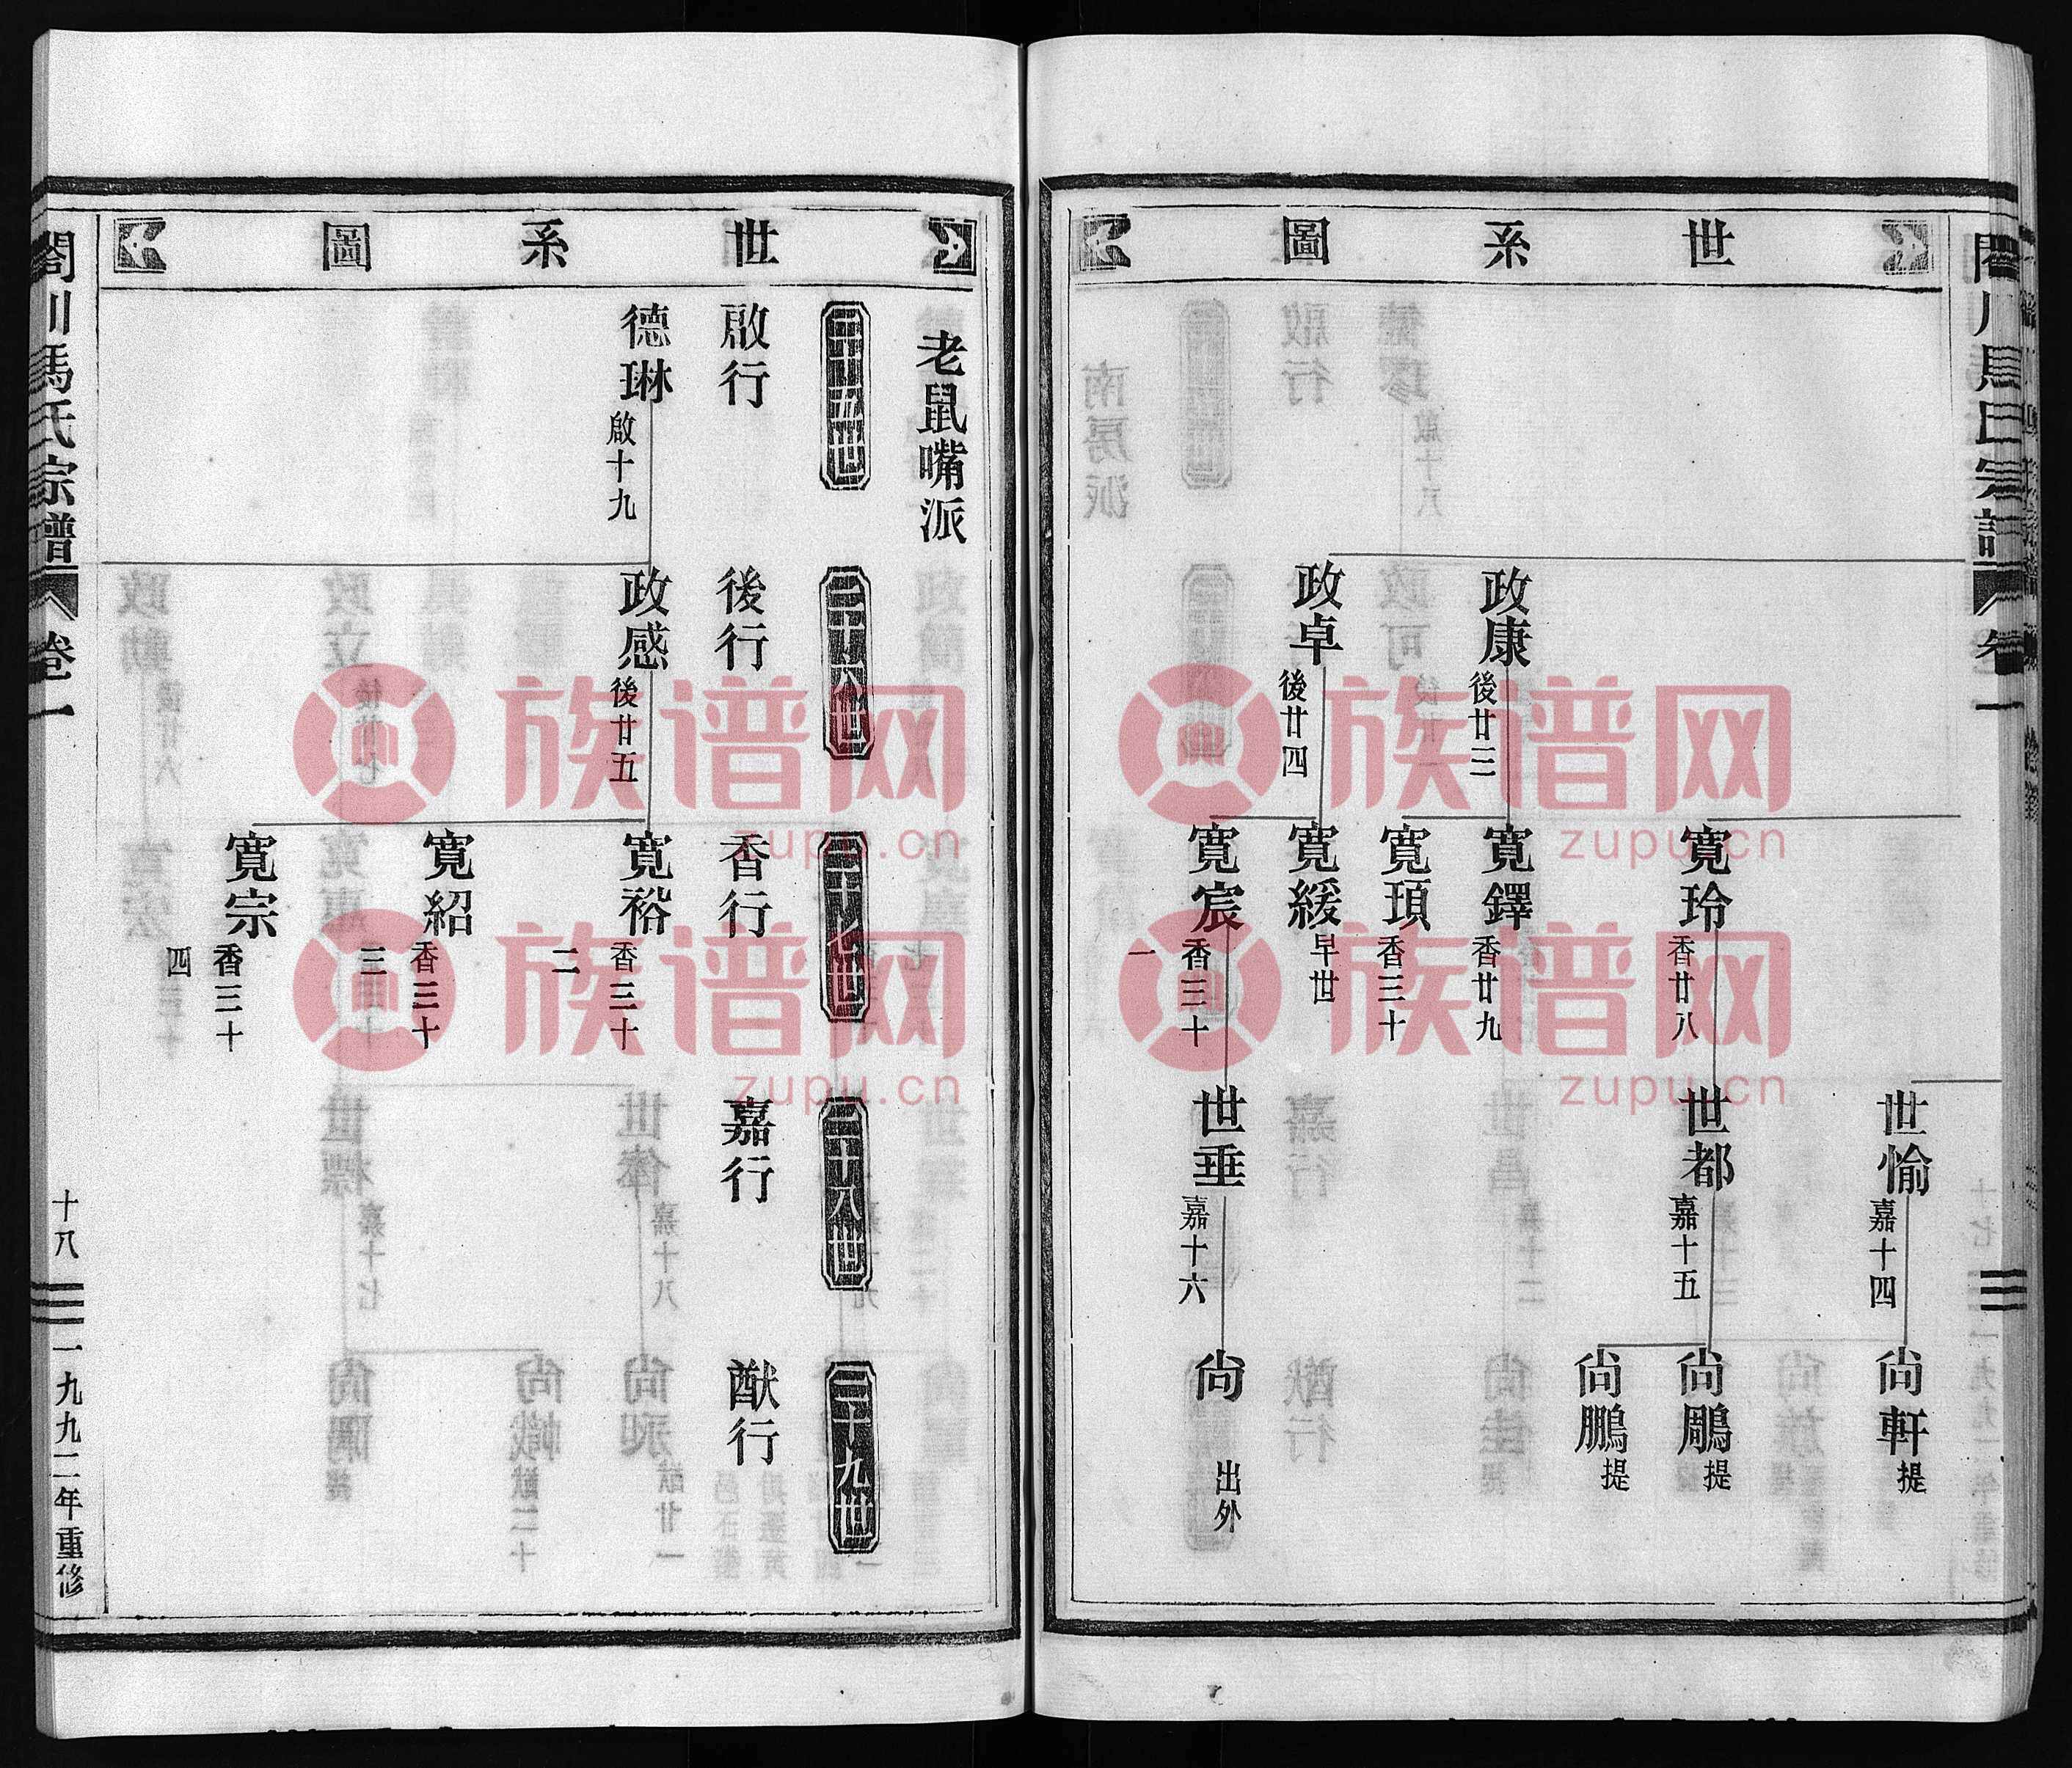 世系圖
世愉 嘉十四
尙軒 提
寬玲 香廿八
世都 嘉十五
尙鵰 提
尙鵬 提
政康 後廿三
寬鐸 香廿九
寬頊 香三十
政卓 後廿四
寬緩 早世
寬宸 香三十一
世垂 嘉十六
尙 出外
世系圖
老鼠嘴派
二十五世
二十六世
二十七世
二十八世
二十九世
啟行
後行
香行
嘉行
猷行
德琳 啟十九
政感 後廿五
寬裕 香三十二
寬紹 香三十三
寬宗 香三十四
閤川馮氏宗譜
卷一
十八
一九九二年重修
族谱网
zupu.cn
族谱网
zupu.cn
族谱网
zupu.cn
族谱网
zupu.cn